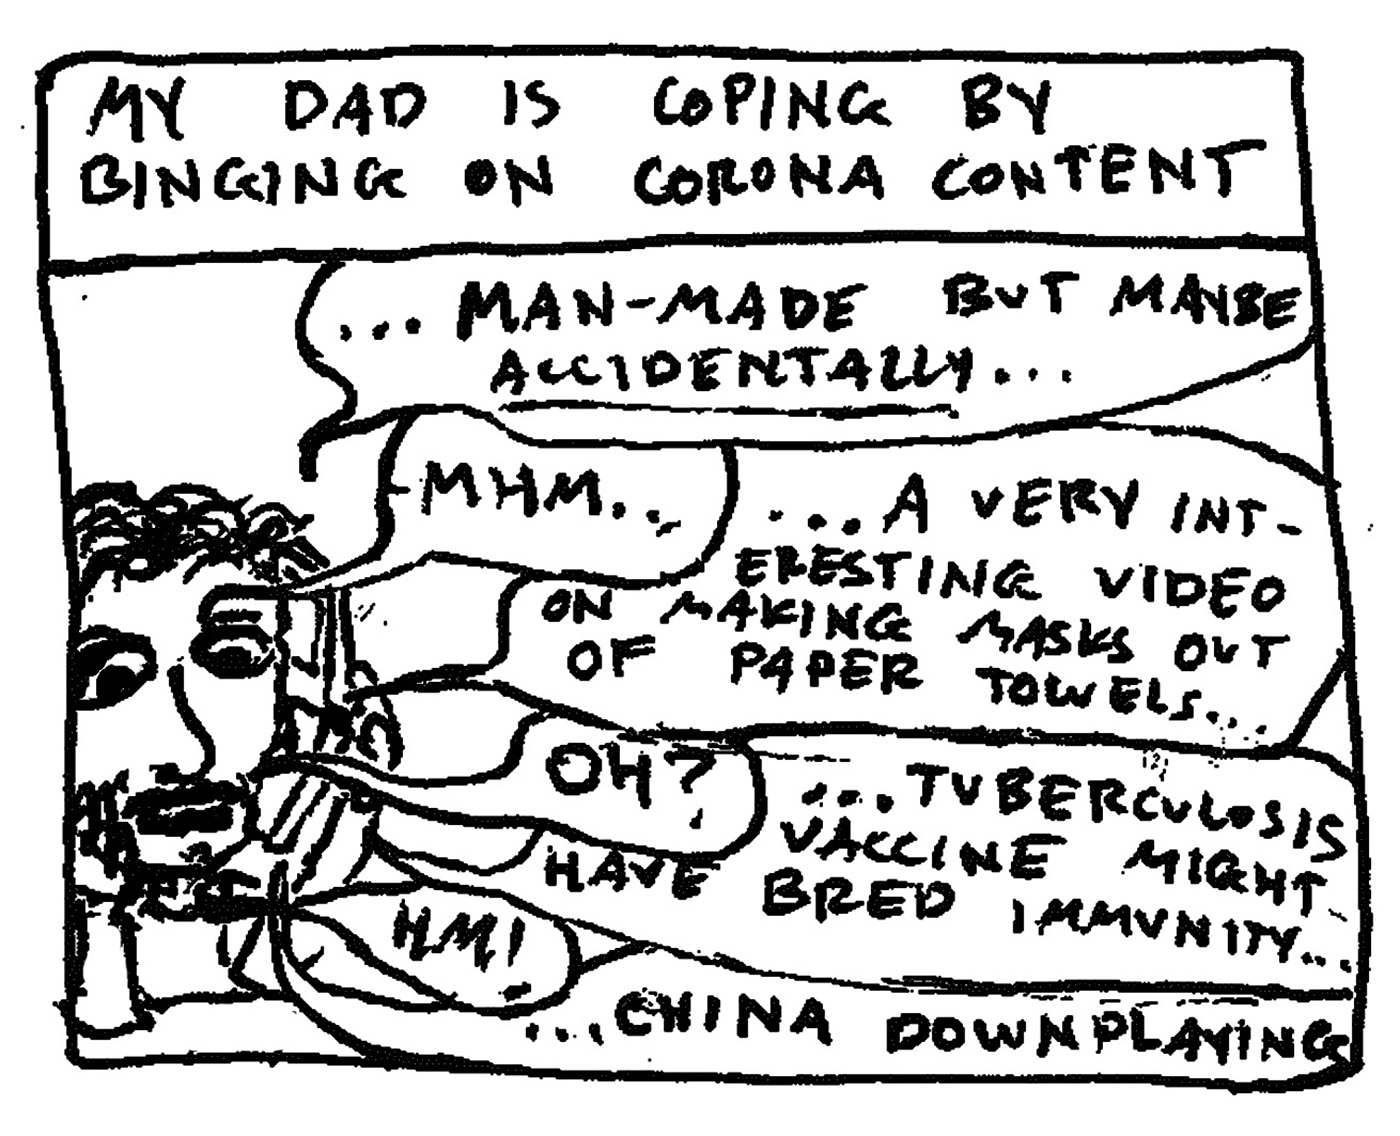 MY DAD IS COPING BY
BINGING ON CORONA CONTENT
... MAN-MADE BUT MAYBE
ACCIDENTALLY...
MHM...
...A VERY INT-
ERESTING VIDEO
ON MAKING MASKS OUT
OF PAPER TOWELS...
OH?
...TUBERCULOSIS
VACCINE MIGHT
HAVE BRED IMMUNITY...
HM!
...CHINA DOWNPLAYING